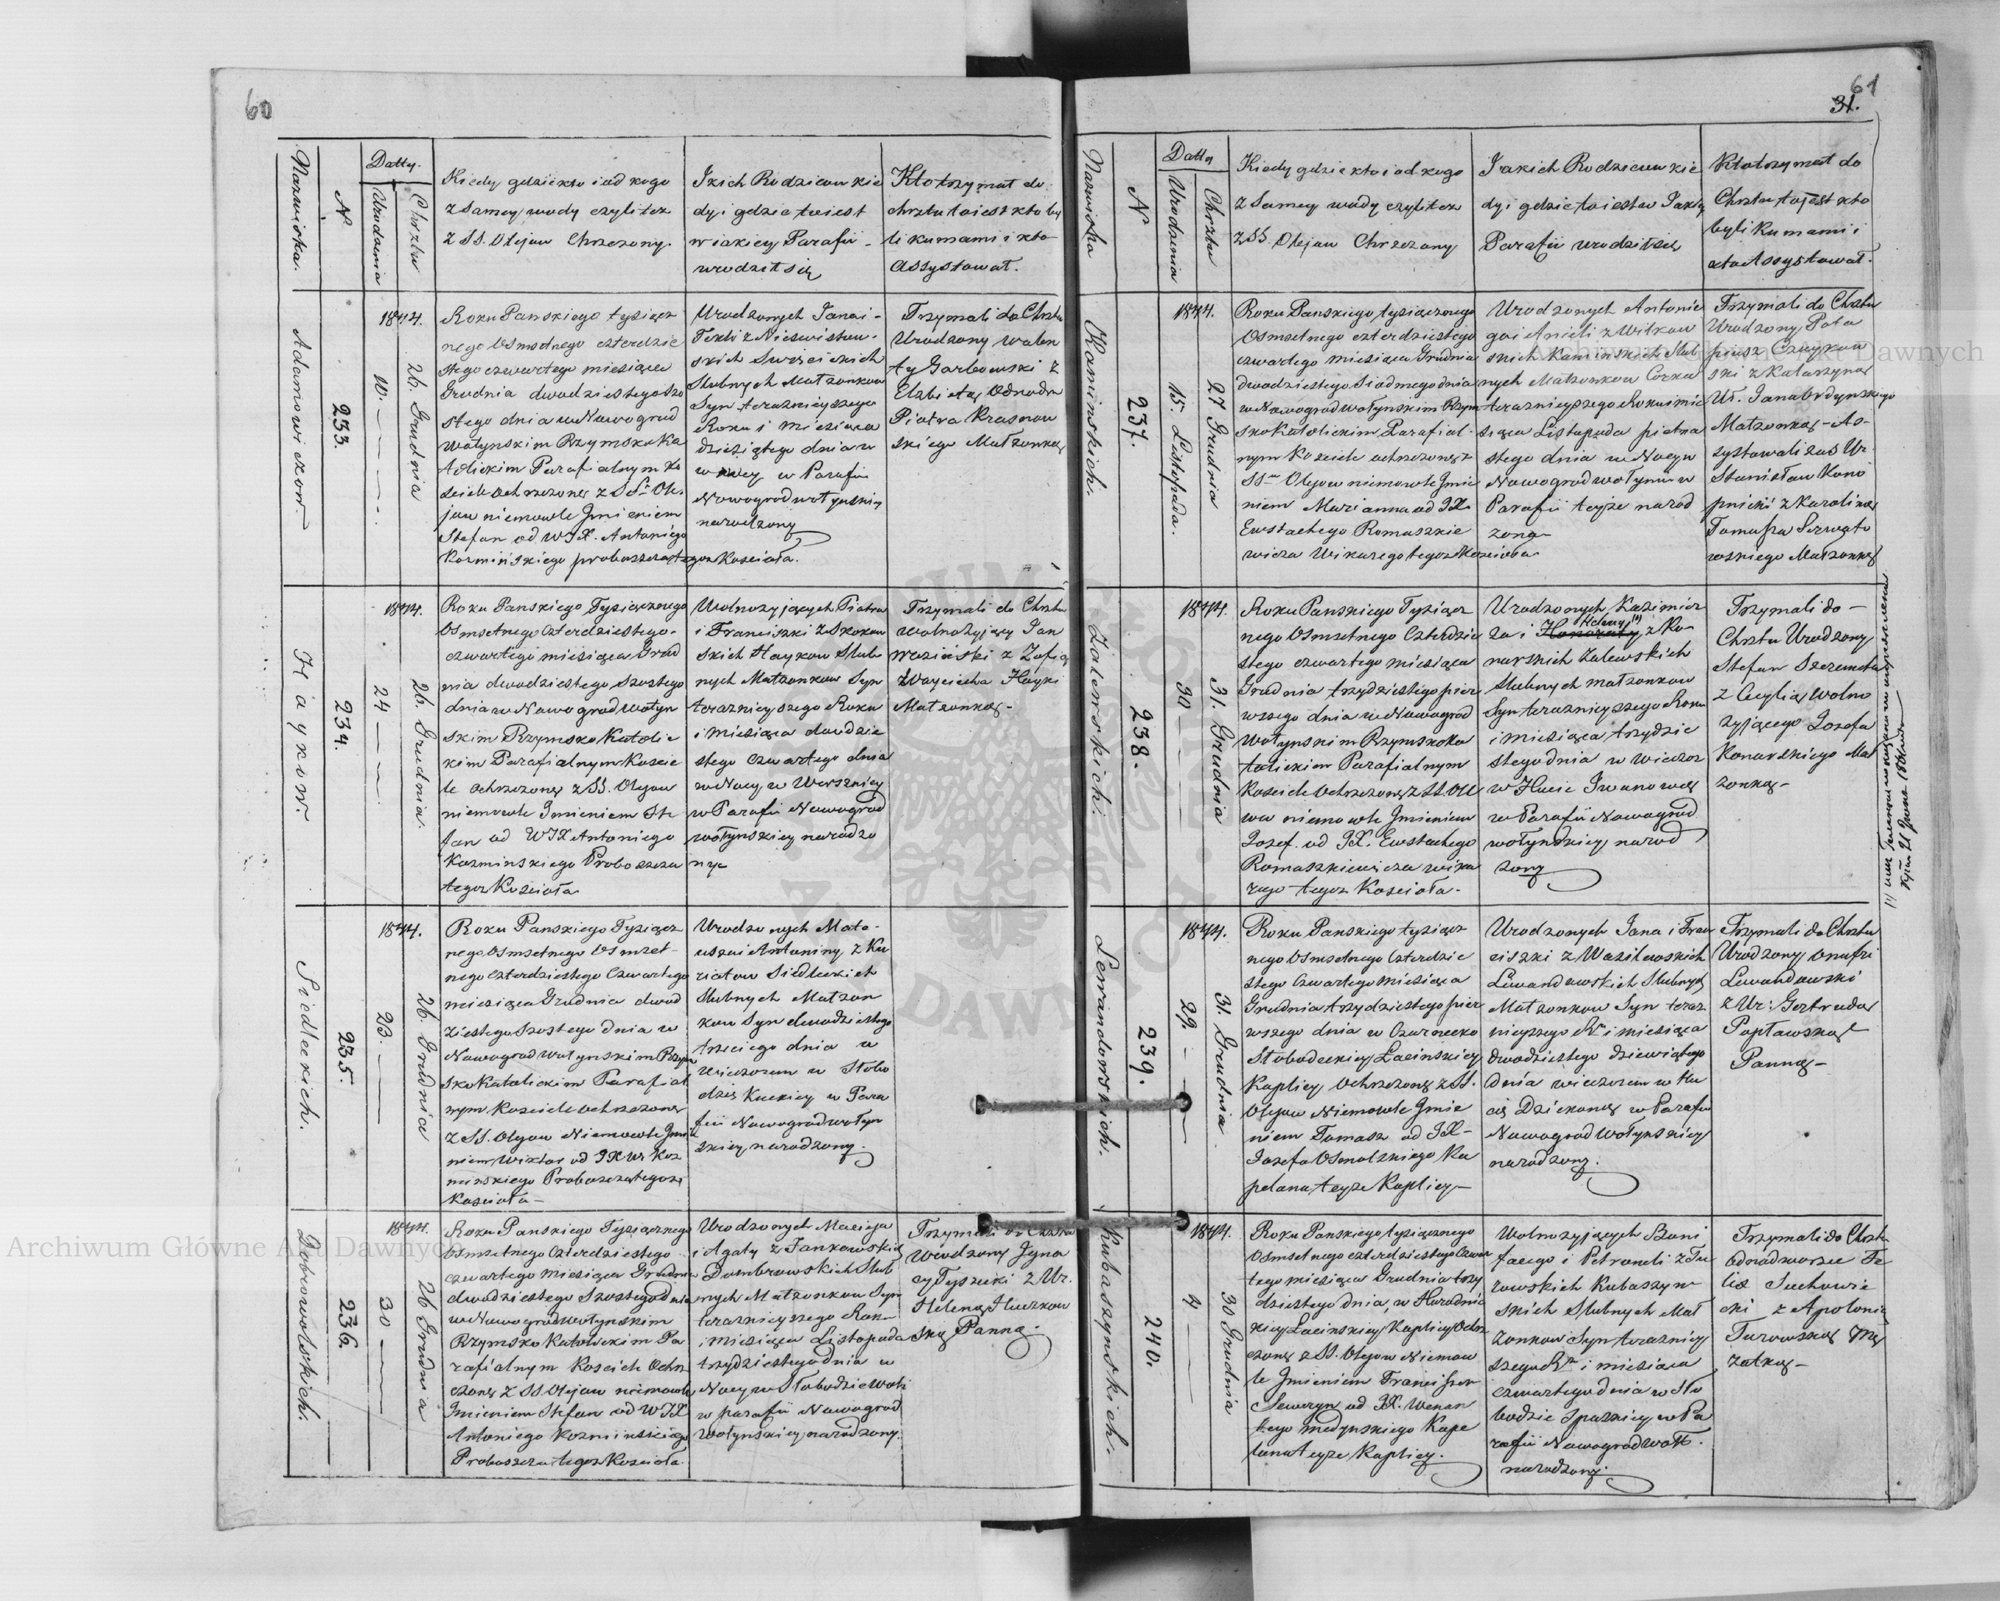 60
Nazwiska.
N
Datty.
Urodzenia
Chrztu
Kiedy gdzie kto i od kogo
z samey wody czyli też
z SS. Olejow Chrzczony.
Ikich Rodzicow kie
dy i gdzie to iest
w iakiey Parafii
urodził się
Kto trzymał do
chrztu to iest kto by
li kumami i kto
Assystował.
Adamowiczow
233.
1844.
10.
26. Grudnia
Roku Panskiego tysiącz
nego Osmsetnego czterdzie
stego czwartego miesiąca
Grudnia dwodziestego szo
stego dnia w Nowogrod
Wołynskim Rzymsko Ka
tolickim Parafialnym Ko
sciele ochrzczony z S Sch Ole
jow niemowle Imieniem
Stefan od WJX. Antoniego
Kozmińskiego proboszcza tegoz Koscioła.
Urodzonych Jana i
Tekli z Niesiołow
skich
Slubnych Małzonkow
Syn terazniejszego
Roku i Miesiaca
dziesiątego dnia w
w nocy w Parafii
Nowogrodwołynskiey
narodzony
Trzymali do Chrztu
Urodzony Walen
ty Garbowski z
Elzbietą Odnodw
Piotra Krasnow
skiego Małzonką
Haykow.
234.
1844.
24
26. Grudnia.
Roku Panskiego Tysiącznego
Osmsetnego Czterdziestego
czwartego miesiąca Grud
nia dwodziestego Szostego
dnia w Nowogrodwołyn
skim Rzymsko Katolic
kim Parafialnym Koscie
le ochrzczony z SS. Olejow
niemowle Imieniem Ste
fan od WJX Antoniego
Kozminskiego Proboszcza
tegoz Kosciola
Wolnozyjących Piotra
i Franciszki z Skokow
skich Haykow Slub
nych Małzonkow Syn
terazniejszego Roku
i miesiąca dwodzie
stego czwartego dnia
w Nocy w Warszniey
w Parafii Nowogrod
wołynskiey narodzo
ny
Trzymali do Chrztu
wolnożyjący Jan
Woziński z Zofią
Woyciecha Hayki
Małzonką
Siedleckich.
235.
1844.
23
26. Grudnia
Roku Panskiego Tysiącz
nego Osmsetnego Osmset
nego czterdziestego Czwartego
miesiąca Grudnia dwod
ziestego Szostego dnia w
Nowogrodwołynskim Rzym
sko Katolickim Parafial
nym Kosciele ochrzczony
z SS. Olejow Niemowle Imie
niem Wiktor od JX W. Koz
minskiego Proboszcza tegoz
Kosciola
Urodzonych Mate
usza i Antoniny z Ku
ratow Siedleckich
Slubnych Małzon
kow Syn dwodziestego
trzeciego dnia w
Wieczorem w Słobo
dzie Kuckiey w Para
fii Nowogrodwołyn
skiey narodzony
Dąbrowolskich.
236.
1844.
30
26 Grudnia
Roku Panskiego Tysiącznego
Osmsetnego Czterdziestego
czwartego miesiąca Grudnia
dwodziestego Szostego dnia
w Nowogrodwołynskim
Rzymsko Katolickim Pa
rafialnym Kosciele Ochrz
czony z SS Olejow niemowle
Imieniem Stefan od WJX
Antoniego Kozminskiego
Proboszcza tegoz Kosciola
Urodzonych Macieja
i Agaty z Jankowskich
Dombrowskich Slub
nych Małzonkow Syn
terazniejszego Roku
i miesiąca Listopada
trzydziestego dnia w
Nocy w Słobodzie Woli
w parafii Nowogrod
Wołynskiey narodzony.
Trzymali do Chrztu
Urodzony Igna
cy Tyszecki z Ur.
Heleną Huczkow
ską Panną.
61
31.
Nazwiska
N
Datty
Urodzenia
Chrztu
Kiedy gdzie kto i od kogo
z samey wody czyli tez
z SS Olejow Chrzczony
I iakich Rodzicow kie
dy i gdzie to iest w iakiey
Parafii urodził się
Kto trzymał do
Chrztu to jest kto
byli Kumami i
kto Assystował.
Kaminskich.
237.
1844.
15. Listopada.
27 Grudnia
Roku Panskiego tysiącznego
Osmsetnego czterdziestego
czwartego miesiąca Grudnia
dwodziestego Siodmego dnia
w Nowogrodwołynskim Rzym
sko Katolickim Parafial
nym Kosciele ochrzczona z
SSch Olejow niemowle Imie
niem Marianna od JX.
Eustachego Romaszkie
wicza Wikarego tegoz Kosciola
Urodzonych Antonie
go i Anieli z Witkow
skich Kaminskich Slub
nych Małzonkow Corka
terazniejszego Roku i mie
siąca Listopada pietna
stego dnia w Nocy w
Nowogrodwołynsku w
Parafii teyze narod
zona
Trzymali do Chrztu
Urodzony Pota
piusz Czaykow
ski z Katarzyną
Ur. Jana Ordynskiego
Małzonką As
systowali zas Ur.
Stanisław Kono
pnicki z Karoliną
Tomasza Serwato
wskiego Małzonką
Zalewskich.
238.
1844.
30
31. Grudnia
Roku Panskiego Tysiącz
nego Osmsetnego Czterdzie
stego czwartego miesiąca
Grudnia trzydziestego pier
wszego dnia w Nowogrod
Wołynskim Rzymsko Ka
tolickim Parafialnym
Kosciele Ochrzczony z SS. Ole
iow niemowle Imieniem
Jozef od JX. Eustachego
Romaszkiewicza wika
rego tegoz Kosciola
Urodzonych Kazimier
za i Honoraty Heleny (1) z Ko
narskich Zalewskich
Slubnych małzonkow
Syn terazniejszego Roku
i miesiąca trzydzie
stego dnia w wieczor
w Hucie Iwanowey
w Parafii Nowogrod
wołynskiey narod
zony
Trzymali do
Chrztu Urodzony
Stefan Szczeniowski
z Cecylią wolno
zyjącego Jozefa
Konarskiego Mał
zonką
Lewandowskich.
239.
1844.
29.
31. Grudnia
Roku Panskiego tysiącz
nego Osmsetnego Czterdzie
stego Czwartego miesiąca
Grudnia trzydziestego pier
wszego dnia w Czarnecko
Słobodeckiey Łacinskiey
Kaplicy Ochrzczony z SS.
Olejow Niemowle Imie
niem Tomasz od JX
Jozefa Osmolskiego Ka
pelana teyze Kaplicy
Urodzonych Jana i Fran
ciszki z Wasilewskich
Lewandowskich Slubnych
Małzonkow Syn teraz
nieyszego Rku i miesiąca
dwodziestego dziewiątego
dnia wieczorem w Hu
cie Dziekoney w Parafii
Nowogrodwołynskiey
narodzony.
Trzymali do Chrztu
Urodzony Onufri
Lewandowski
z Ur: Gertrudą
Popławską
Panną
Kubaszynskich.
240.
1844.
4
30 Grudnia
Roku Panskiego tysiącznego
Osmsetnego czterdziestego Czwar
tego miesiąca Grudnia trzy
dziestego dnia w Horodnic
kiey Łacinskiey Kaplicy Ochrz
czony z SS. Olejow Niemow
le Imieniem Franciszek
Seweryn od JX. Wenan
tego Medynskiego Kape
lana teyze Kaplicy.
Wolnozyjących Boni
facego i Petroneli z Tu
rowskich Kubaszyn
skich Slubnych Mał
zonkow Syn terazniey
szego Rku i miesiaca
czwartego dnia w Sło
bodzie w Pa
rafii Nowogrodwoł.
narodzony.
Trzymali do Chrztu
odnodworzec Fe
lix Suchowie
cki z Apolonią
Turowską Mę
zatką
Archiwum Główne Akt Dawnych
Archiwum Główne Akt Dawnych